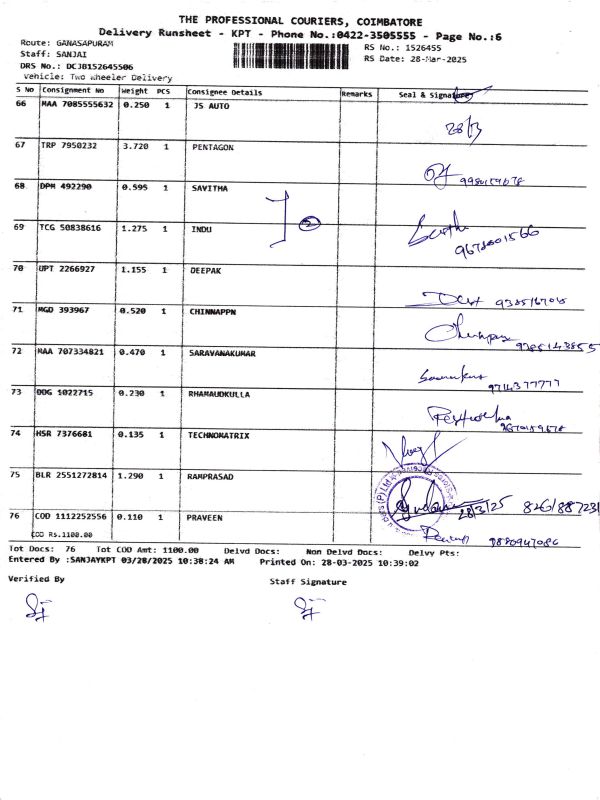 THE PROFESSIONAL COURIERS, COIMBATORE
Delivery Runsheet - KPT - Phone No.:0422-3505555 - Page No.:6
Route: GANASAPURAM
RS No.: 1526455
Staff: SANJAI
RS Date: 28-Mar-2025
DRS No.: DCJB152645506
Vehicle: Two Wheeler Delivery
S No Consignment No Weight PCS Consignee Details Remarks Seal & Signature
66 MAA 7085555632 0.250 1 JS AUTO
28/3
67 TRP 7950232 3.720 1 PENTAGON
68 DPM 492290 0.595 1 SAVITHA
2
69 TCG 50838616 1.275 1 INDU
9678001566
70 UPT 2266927 1.155 1 DEEPAK
71 MGD 393967 0.520 1 CHINNAPPN
9285143855
72 MAA 707334821 0.470 1 SARAVANAKUMAR
9714377777
73 DDG 1022715 0.230 1 RHAMAUDKULLA
74 HSR 7376681 0.135 1 TECHNOMATRIX
75 BLR 2551272814 1.290 1 RAMPRASAD
28/3/25
76 COD 1112252556 0.110 1 PRAVEEN
COD Rs.1100.00
Tot Docs: 76 Tot COD Amt: 1100.00 Delvd Docs: Non Delvd Docs: Delvy Pts:
Entered By :SANJAYKPT 03/28/2025 10:38:24 AM Printed On: 28-03-2025 10:39:02
Verified By
Staff Signature